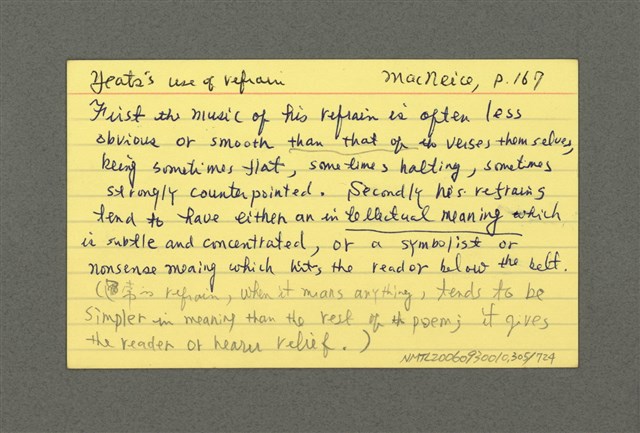 Yeats's use of refrain MacNeice, p.167
First the music of his refrain is often less
obvious or smooth than that of the verses themselves,
being sometimes flat, sometimes halting, sometimes
strongly counterpointed. Secondly his refrains
tend to have either an intellectual meaning which
is subtle and concentrated, or a symbolist or
nonsense meaing which hits the reader below the belt.
(常 refrain, when it means anything, tends to be
simpler in meaning than the rest of the poem; it gives
the reader or hearer relief.)
NMTL20060930010.305/724